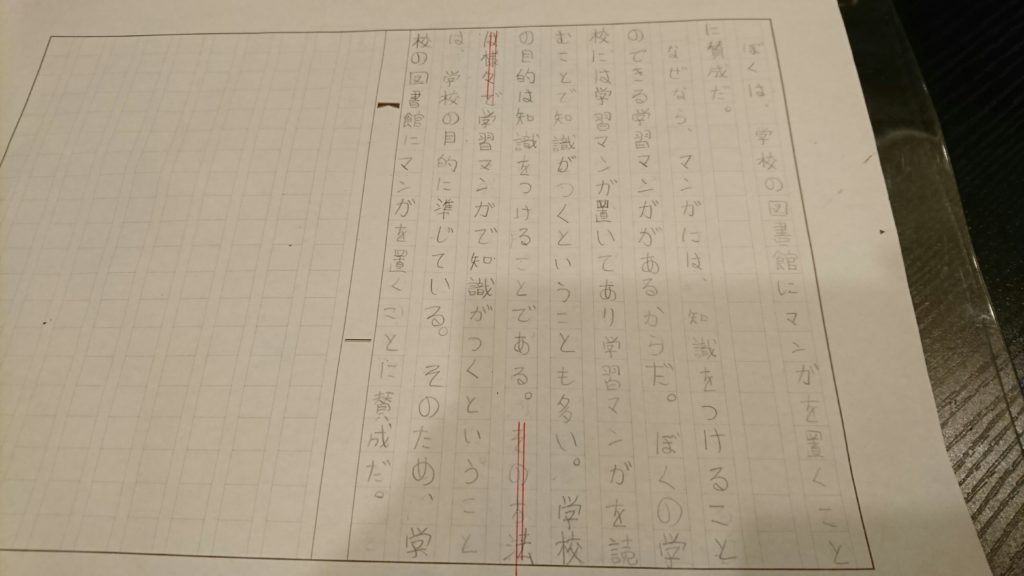 ぼくは、学校の図書館にマンガを置くこと
に賛成だ。
なぜなら、マンガには、知識をつけること
のできる学習マンガがあるからだ。ぼくの学
校には学習マンガ置いてあり学習マンガを読
むことで知識がつくということも多い。学校
の目的は知識をつけることである。その方法
は様々で学習マンガで知識がつくということ
は、学校の目的に準じている。そのため、学
校の図書館にマンガを置くことに賛成だ。